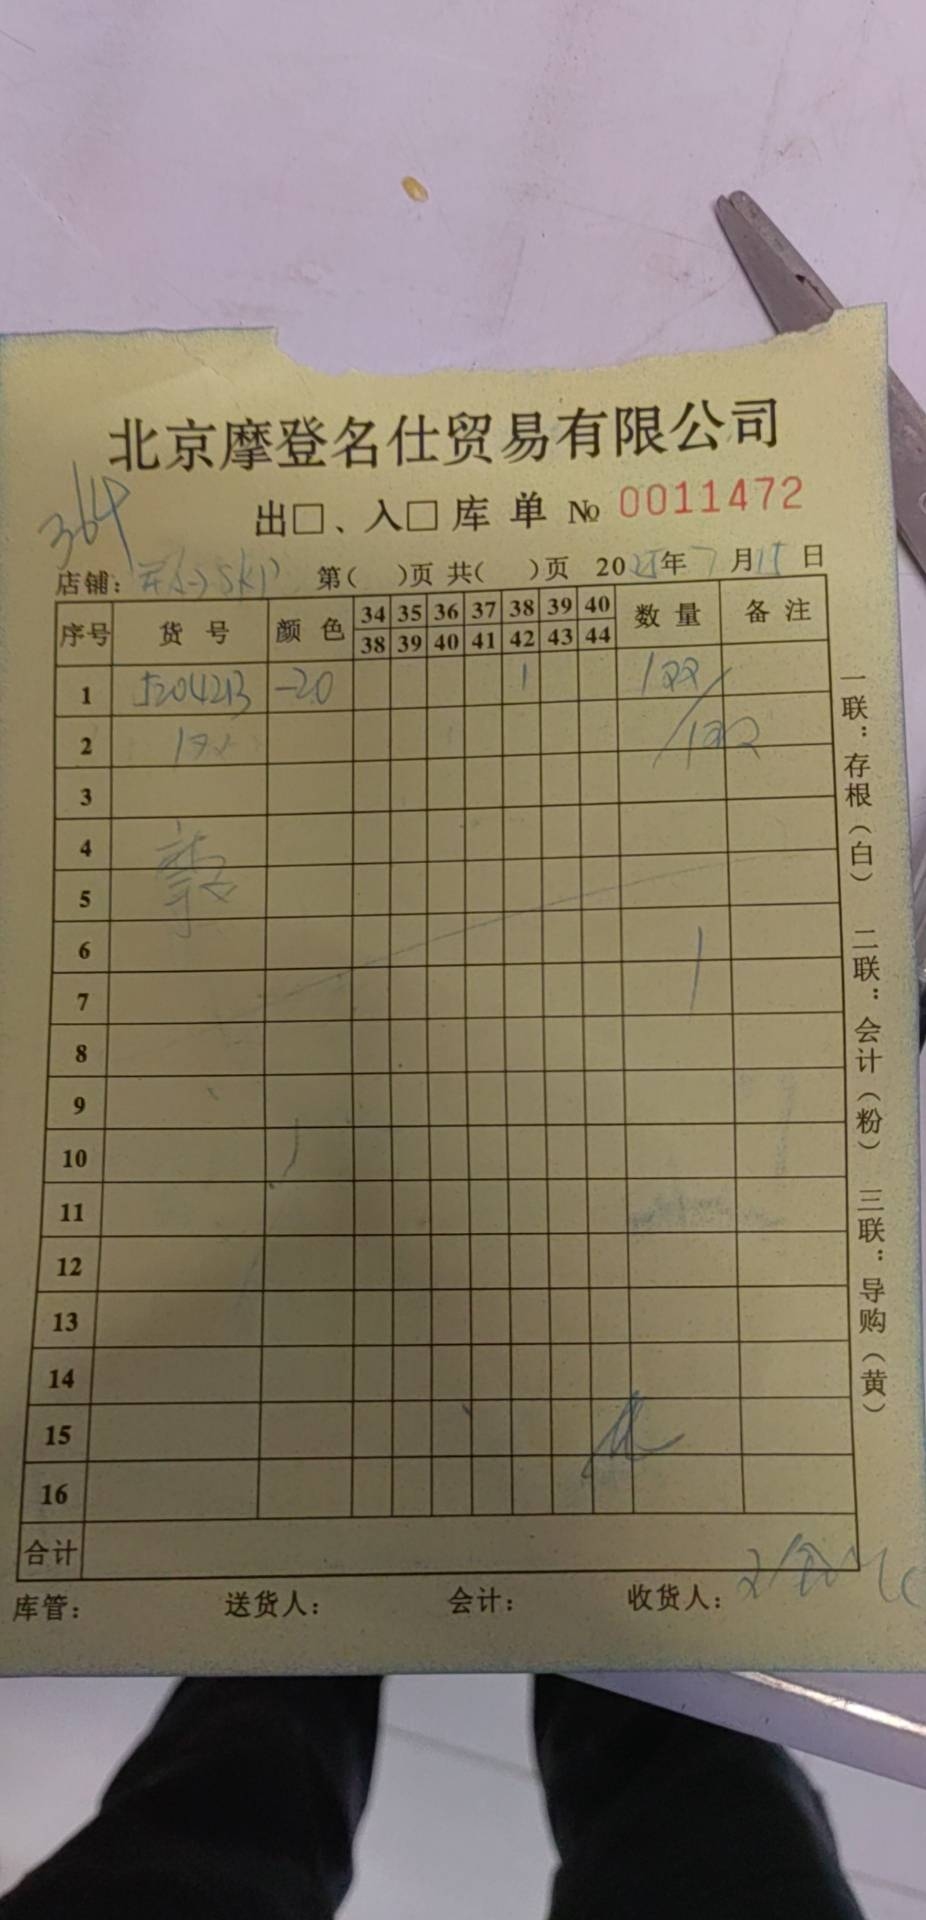 北京摩登名仕贸易有限公司
364
出□、入□ 库 单 № 0011472
店铺: SKP 第( )页 共( )页 2025年7月15日
序号 货 号 颜 色 34 35 36 37 38 39 40 数 量 备 注
38 39 40 41 42 43 44
1 J204213 -20 1
2
3
4
5
6
7
8
9
10
11
12
13
14
15
16
合计
库管: 送货人: 会计: 收货人:
一联:存根(白) 二联:会计(粉) 三联:导购(黄)